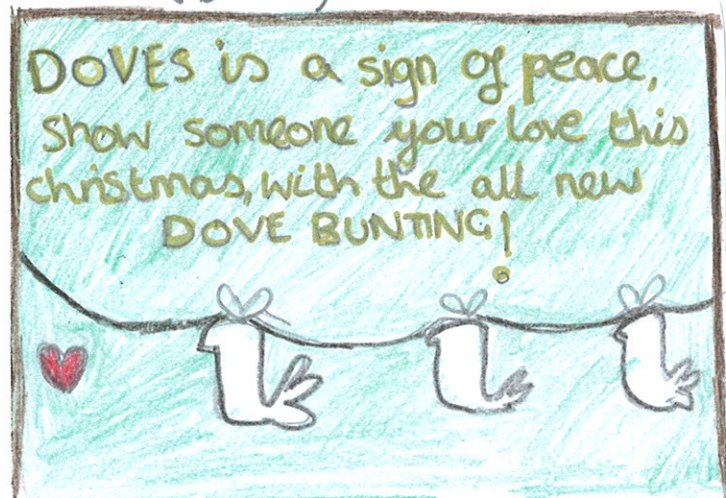 DOVES is a sign of peace,
show someone your love this
christmas, with the all new
DOVE BUNTING!